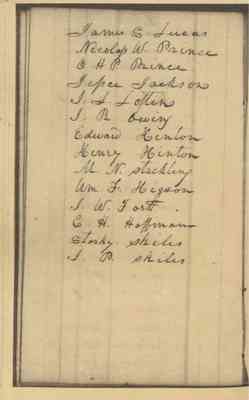 James E. Lucas
Nicolas W. Prince
E H P. Prince
Jesse Jackson
J. L. Loftin
J. R.
Edward Hinton
Henry Hinton
M. N. Stribling
Wm F. Higson
J. W. Fortt.
C. H. Hoffman
Starky Skiles
J. P. Skiles